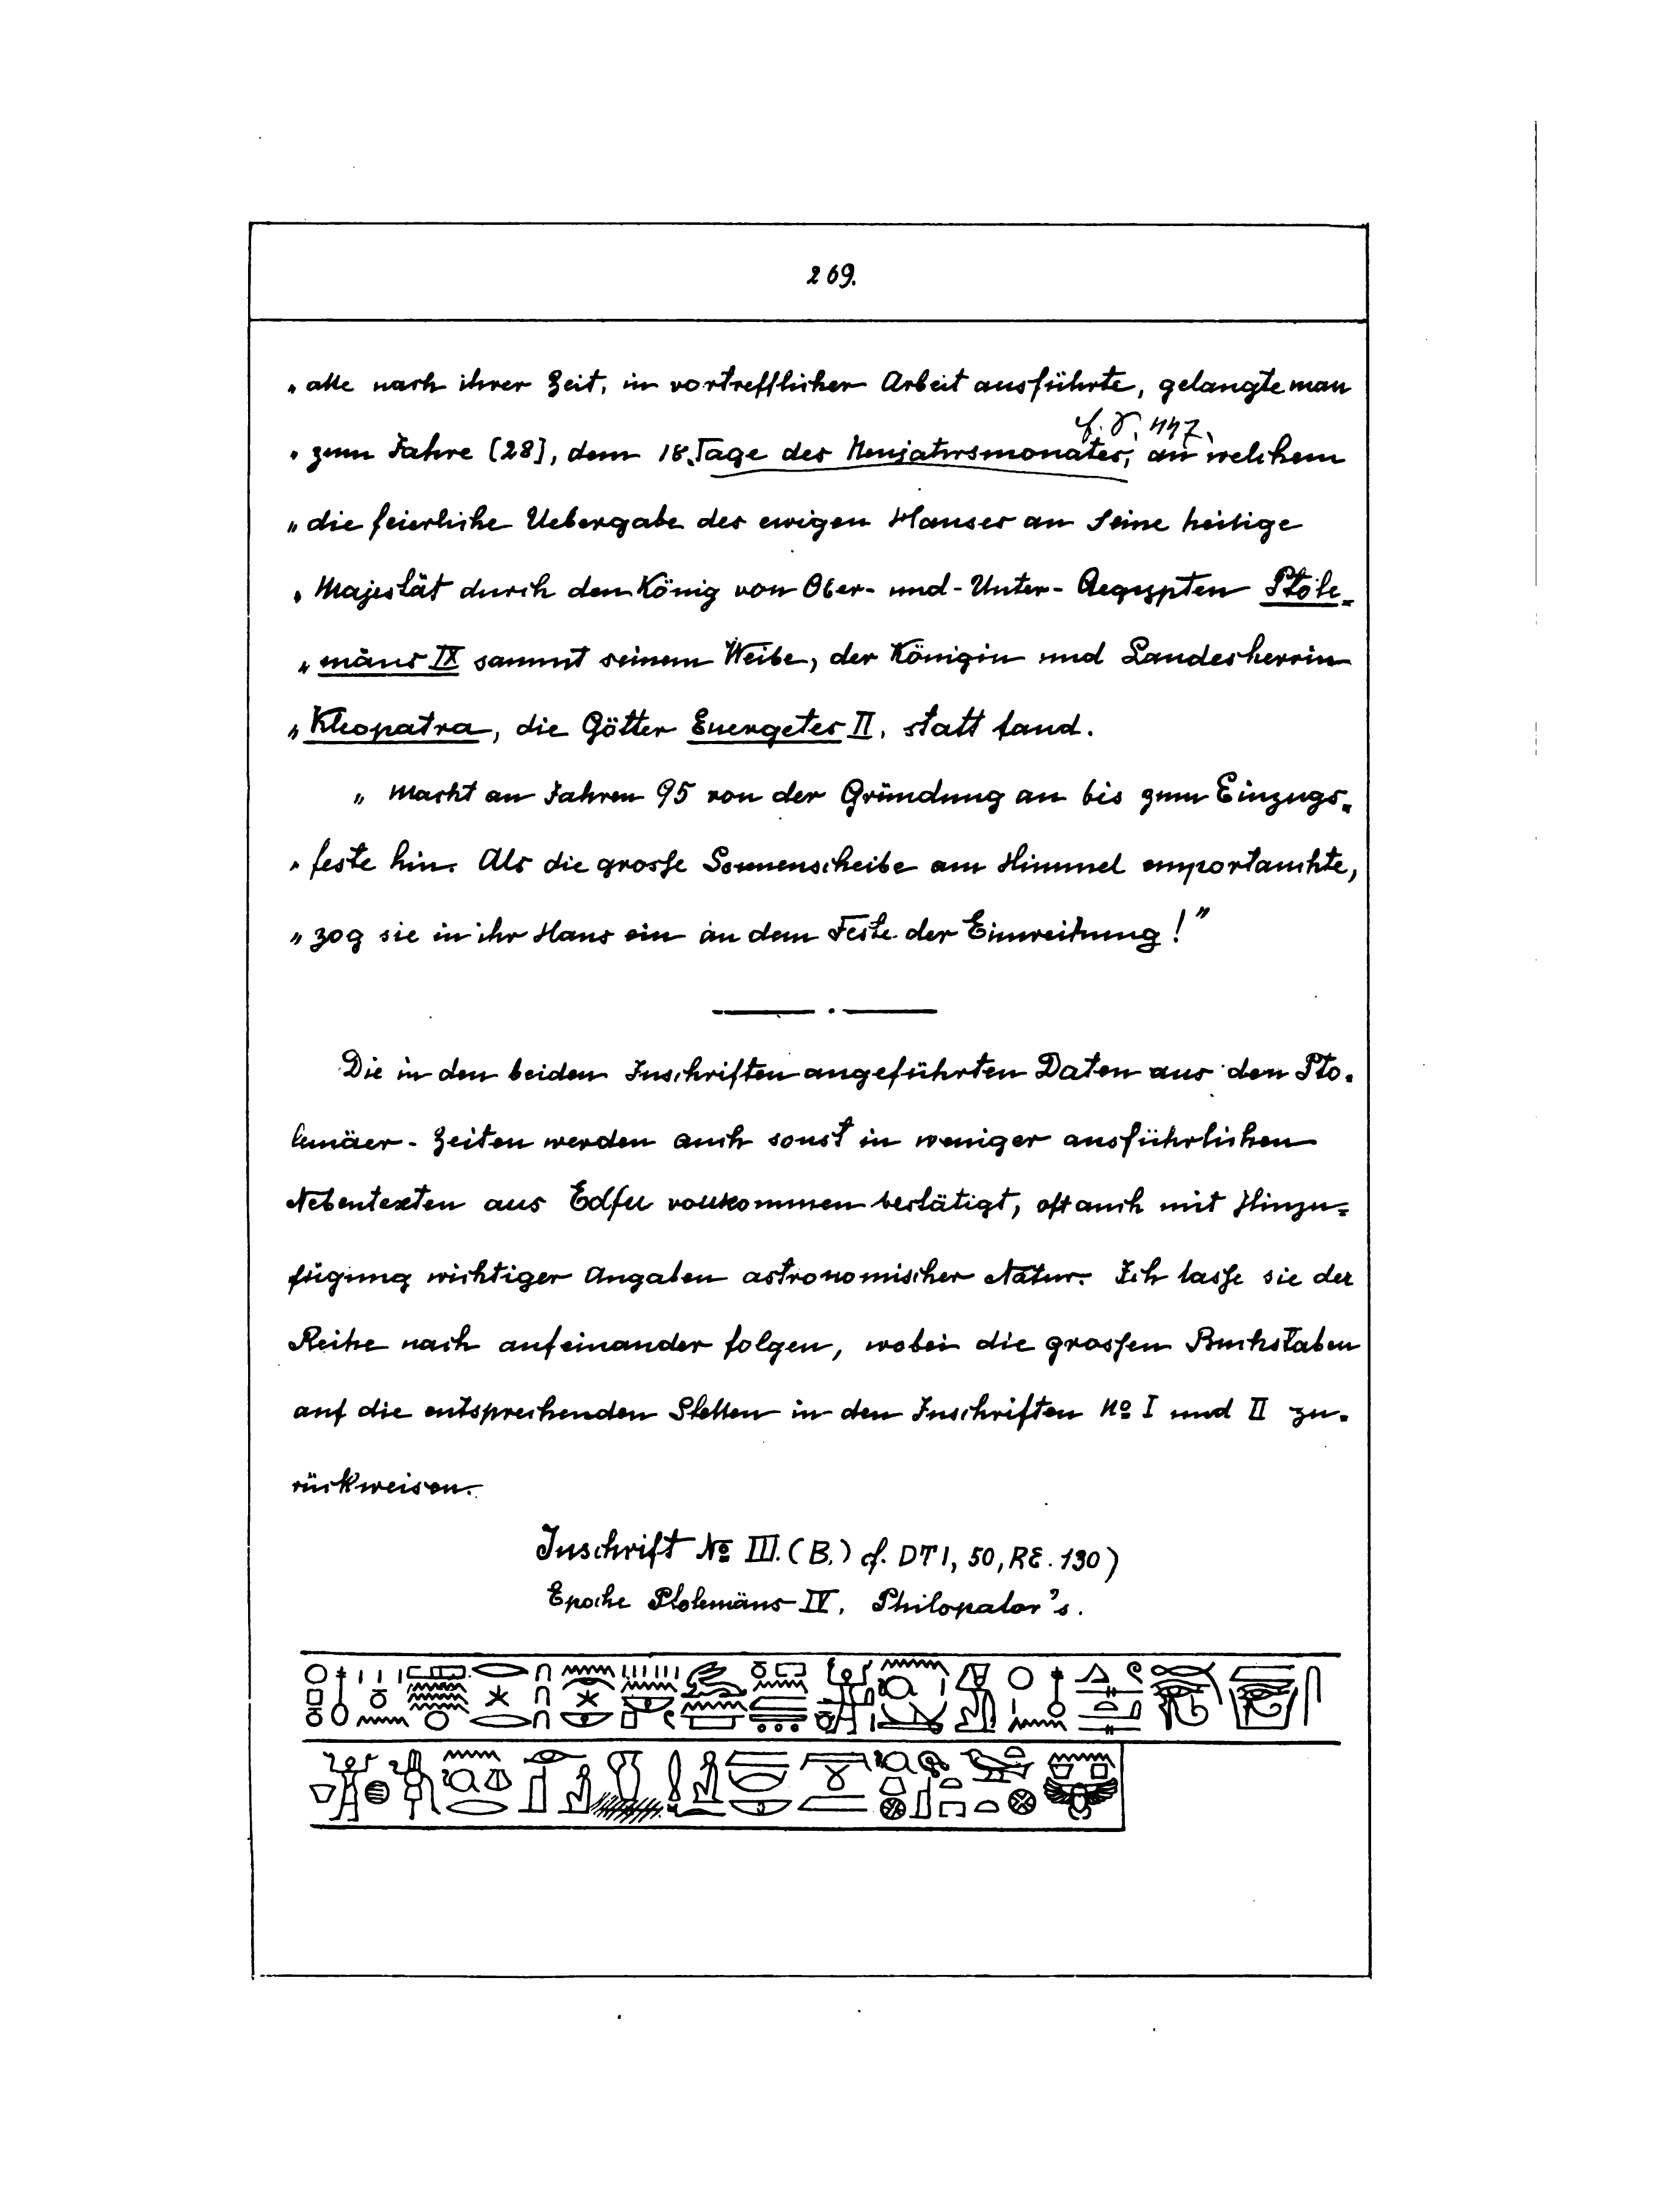 269.
„alle nach ihrer Zeit, in vortrefflicher Arbeit ausführte, gelangte man
cf. 447.
„zum Jahre [28], dem 18. Tage des Neujahrsmonates, an welchem
„die feierliche Uebergabe des ewigen Hauses an Seine heilige
„Majestät durch den König von Ober- und-Unter-Aegypten Ptole-
„mäus IX sammt seinem Weibe, der Königin und Landesherrin
„Kleopatra, die Götter Euergetes II, statt fand.
„Macht an Jahren 95 von der Gründung an bis zum Einzugs-
„feste hin. Als die grosse Sonnenscheibe am Himmel emportauchte,
„zog sie in ihr Haus ein an dem Feste der Einweihung!"
Die in den beiden Inschriften angeführten Daten aus den Pto-
lemäer-Zeiten werden auch sonst in weniger ausführlichen
Nebentexten aus Edfu vollkommen bestätigt, oft auch mit Hinzu-
fügung wichtiger Angaben astronomischer Natur. Ich lasse sie der
Reihe nach aufeinander folgen, wobei die grossen Buchstaben
auf die entsprechenden Stellen in den Inschriften No I und II zu-
rückweisen.
Inschrift No III. (B.) cf. DT I, 50, RE. 130)
Epoche Ptolemäus IV. Philopator's.